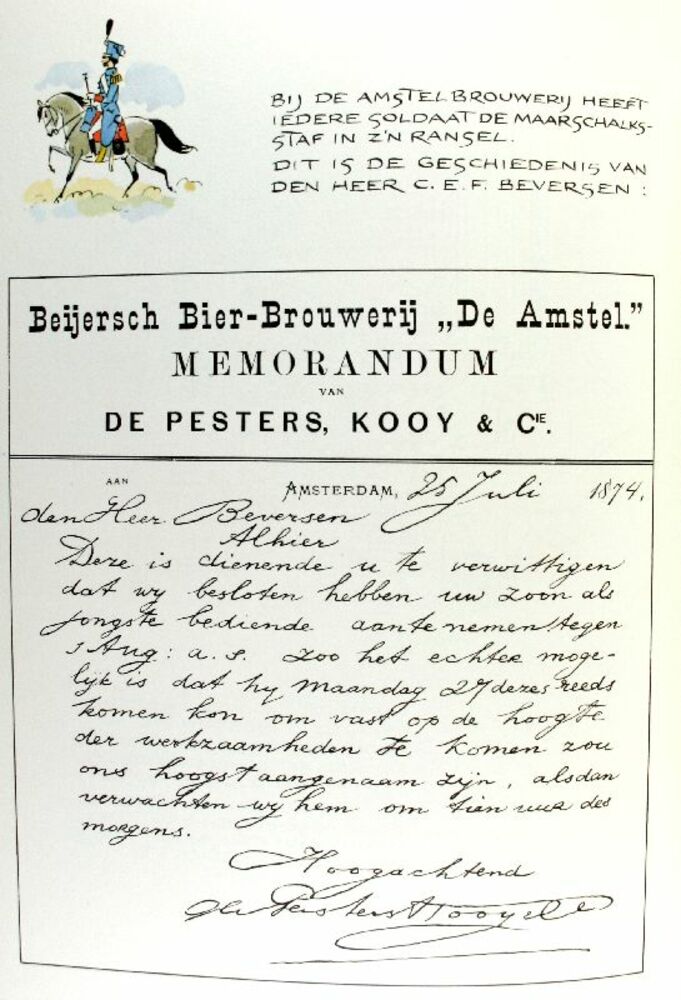 BIJ DE AMSTELBROUWERIJ HEEFT
IEDERE SOLDAAT DE MAARSCHALKS-
STAF IN Z'N RANSEL.
DIT IS DE GESCHIEDENIS VAN
DEN HEER C. E. F. BEVERSEN :
Beijersch Bier-Brouwerij „De Amstel.”
MEMORANDUM
VAN
DE PESTERS, KOOY & CIE.
AAN
AMSTERDAM, 25 Juli 1874.
den Heer Beversen
Alhier
Deze is dienende u te verwittigen
dat wy besloten hebben uw zoon als
jongste bediende aante nemen tegen
1 Aug: a. s. Zoo het echter moge-
lijk is dat hy Maandag 27 dezes reeds
komen kon om vast op de hoogte
der werkzaamheden te komen zou
ons hoogst aangenaam zijn, alsdan
verwachten wy hem om tien uur des
morgens.
Hoogachtend
de Pesters Kooy & Cie